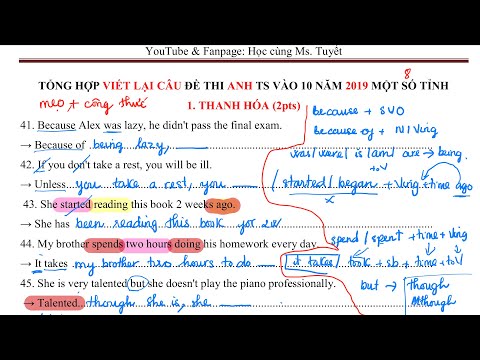 YouTube & Fanpage: Học cùng Ms. Tuyết
8
TỔNG HỢP VIẾT LẠI CÂU ĐỀ THI ANH TS VÀO 10 NĂM 2019 MỘT SỐ TỈNH
mẹo + công thức
1. THANH HÓA (2pts)
41. Because Alex was lazy, he didn't pass the final exam.
→ Because of being lazy,
42. If you don't take a rest, you will be ill.
→ Unless you take a rest, you
43. She started reading this book 2 weeks ago.
→ She has been reading this book for 2w
44. My brother spends two hours doing his homework every day.
→ It takes my brother two hours to do
45. She is very talented but she doesn't play the piano professionally.
→ Talented though she is, she
because + SVO
because of + N / Ving
was / were / is / am / are → being.
to V
/ started / began + Ving + time ago
x
spend / spent + time + Ving
it takes / took + sb + time + to V
but → though
Although